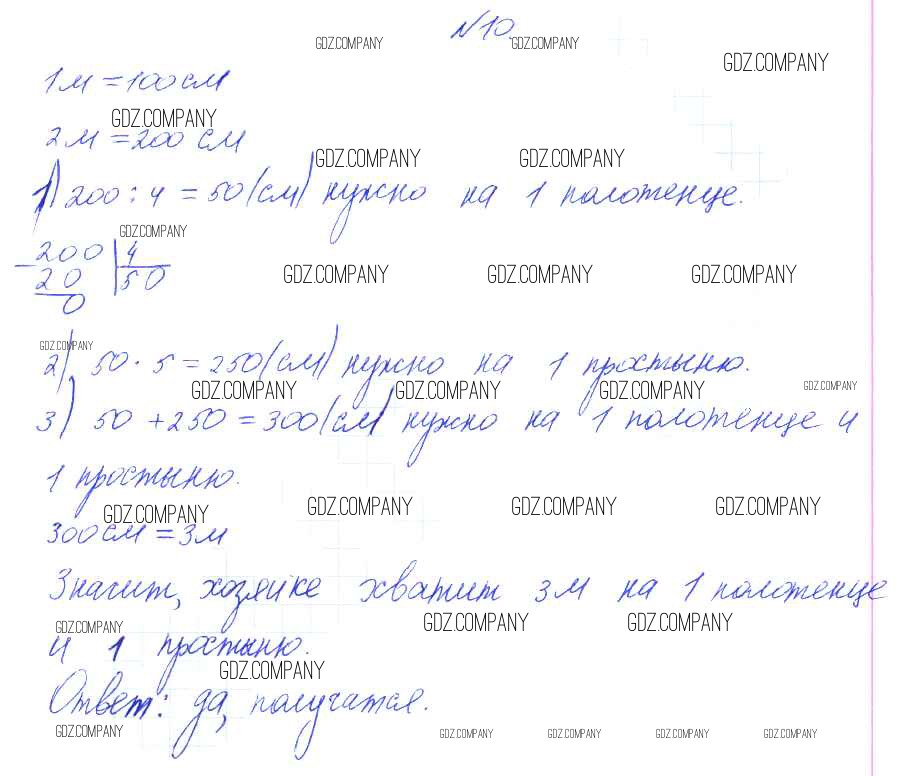 №10.
GDZ.COMPANY GDZ.COMPANY
GDZ.COMPANY
1м = 100 см
GDZ.COMPANY
2м = 200 см
GDZ.COMPANY GDZ.COMPANY
1) 200 : 4 = 50 (см) нужно на 1 полотенце.
GDZ.COMPANY
200 4
GDZ.COMPANY GDZ.COMPANY GDZ.COMPANY
20 50
0
GDZ.COMPANY
2) 50 · 5 = 250 (см) нужно на 1 простыню.
GDZ.COMPANY GDZ.COMPANY GDZ.COMPANY GDZ.COMPANY
3) 50 + 250 = 300 (см) нужно на 1 полотенце и
1 простыню.
GDZ.COMPANY GDZ.COMPANY GDZ.COMPANY GDZ.COMPANY
300 см = 3м
Значит, хозяйке хватит 3м на 1 полотенце
GDZ.COMPANY GDZ.COMPANY GDZ.COMPANY
и 1 простыню.
GDZ.COMPANY
Ответ: да, получатся.
GDZ.COMPANY GDZ.COMPANY GDZ.COMPANY GDZ.COMPANY GDZ.COMPANY